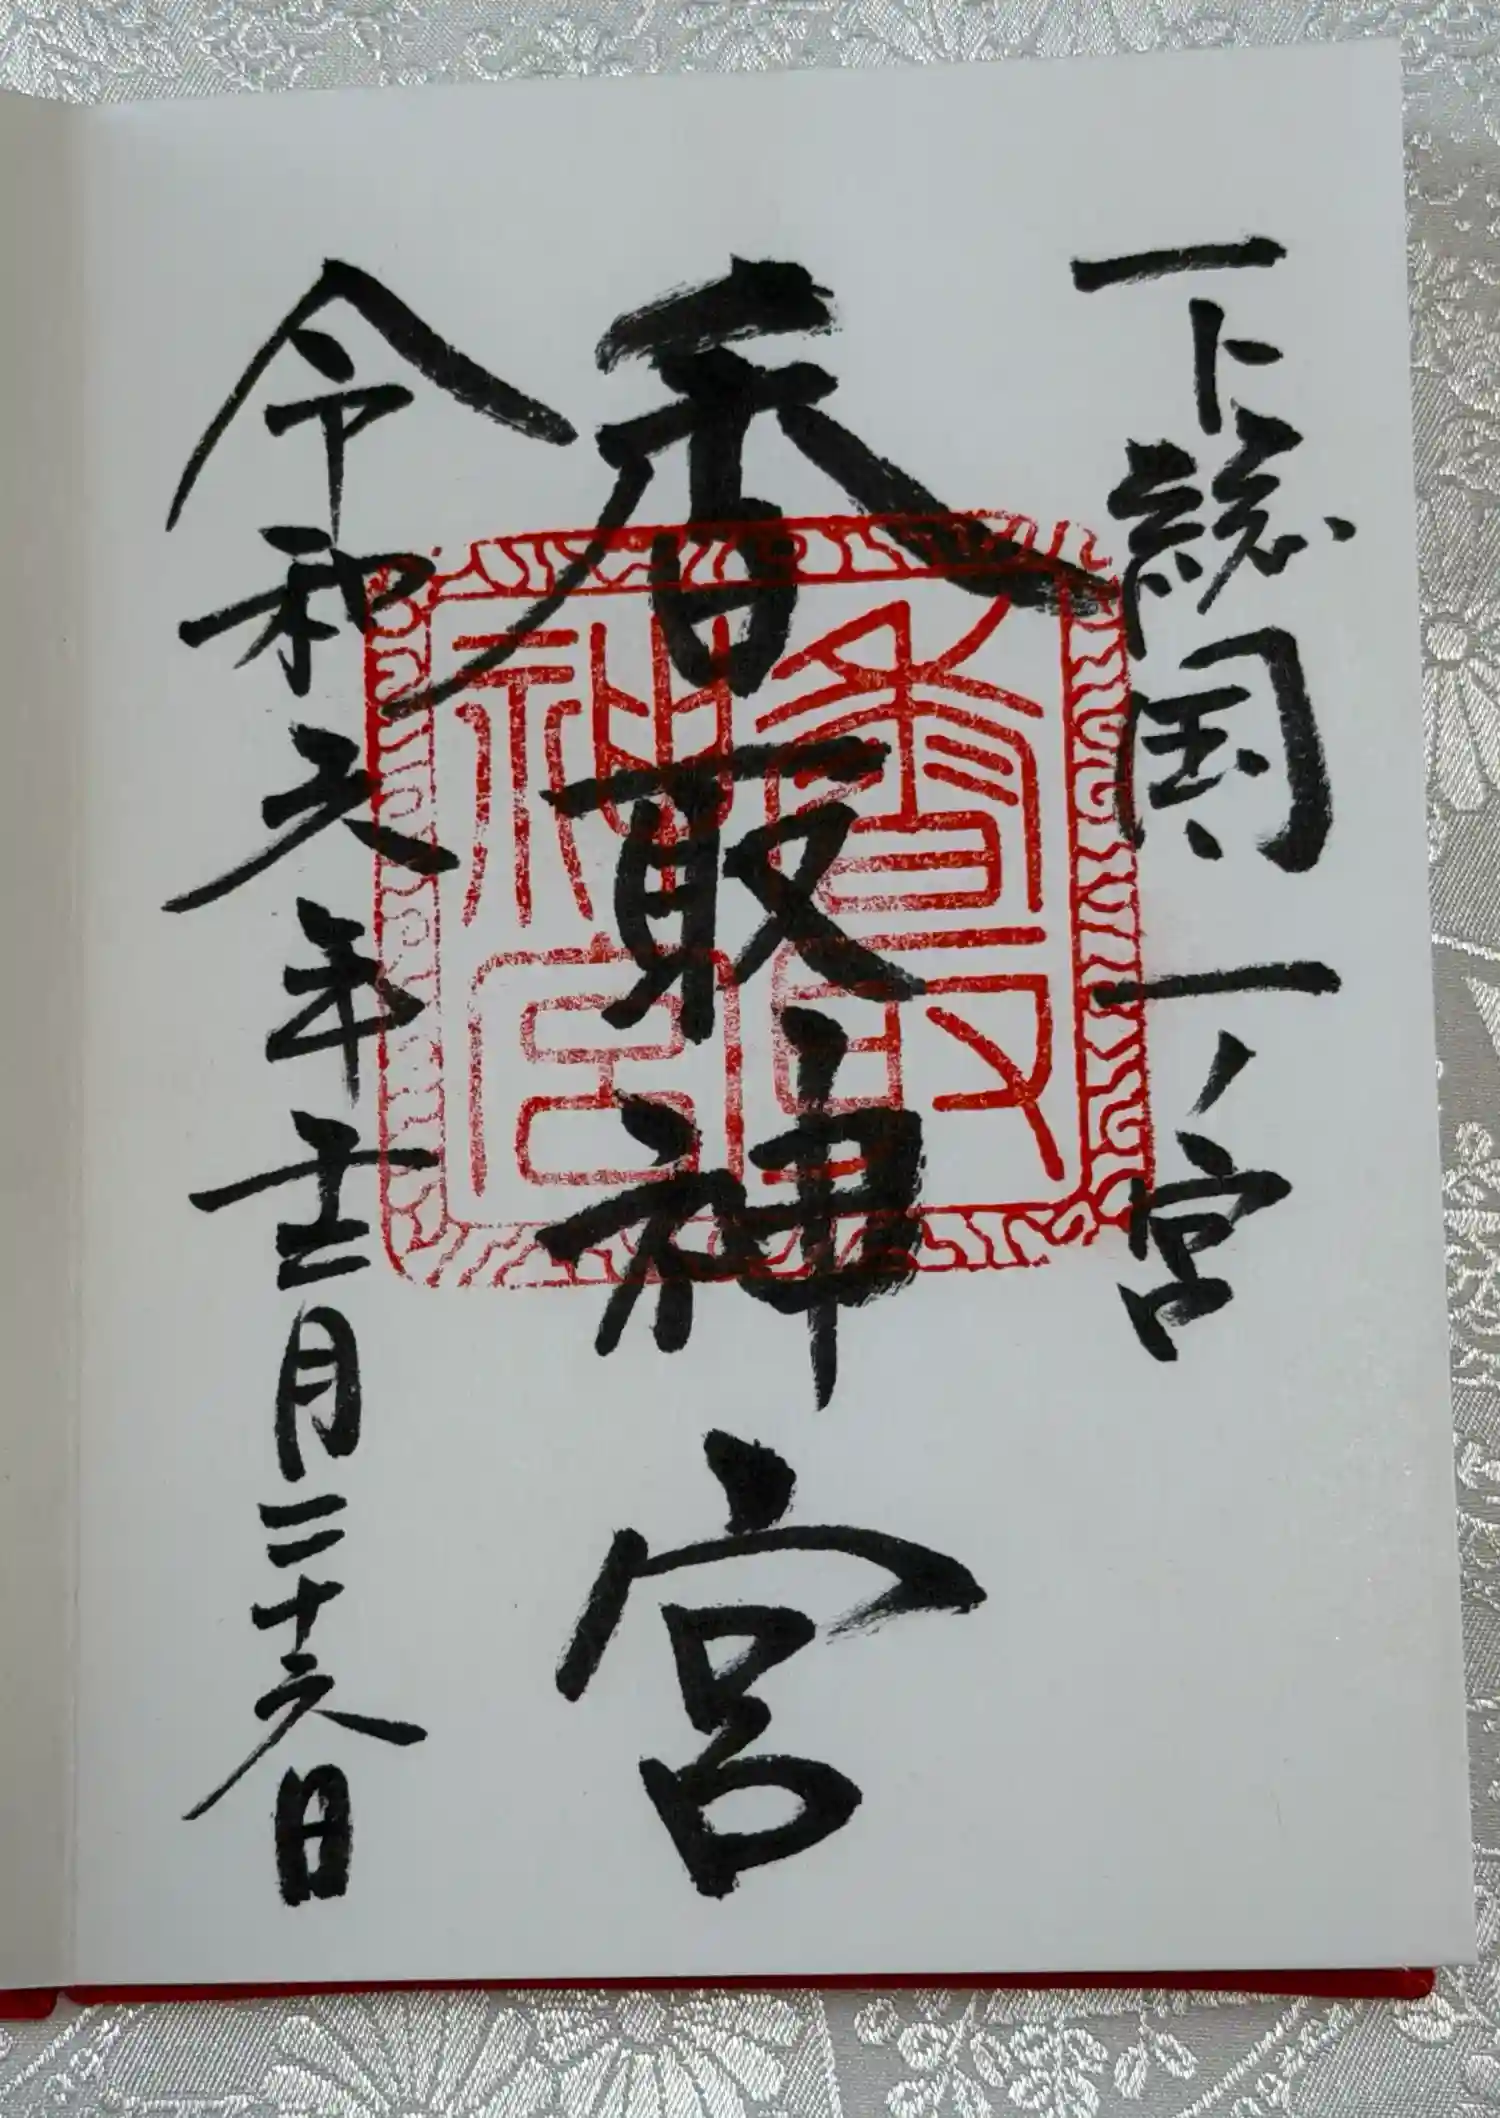 下総国一ノ宮
香取神宮
令和元年十二月二十六日
香取神宮